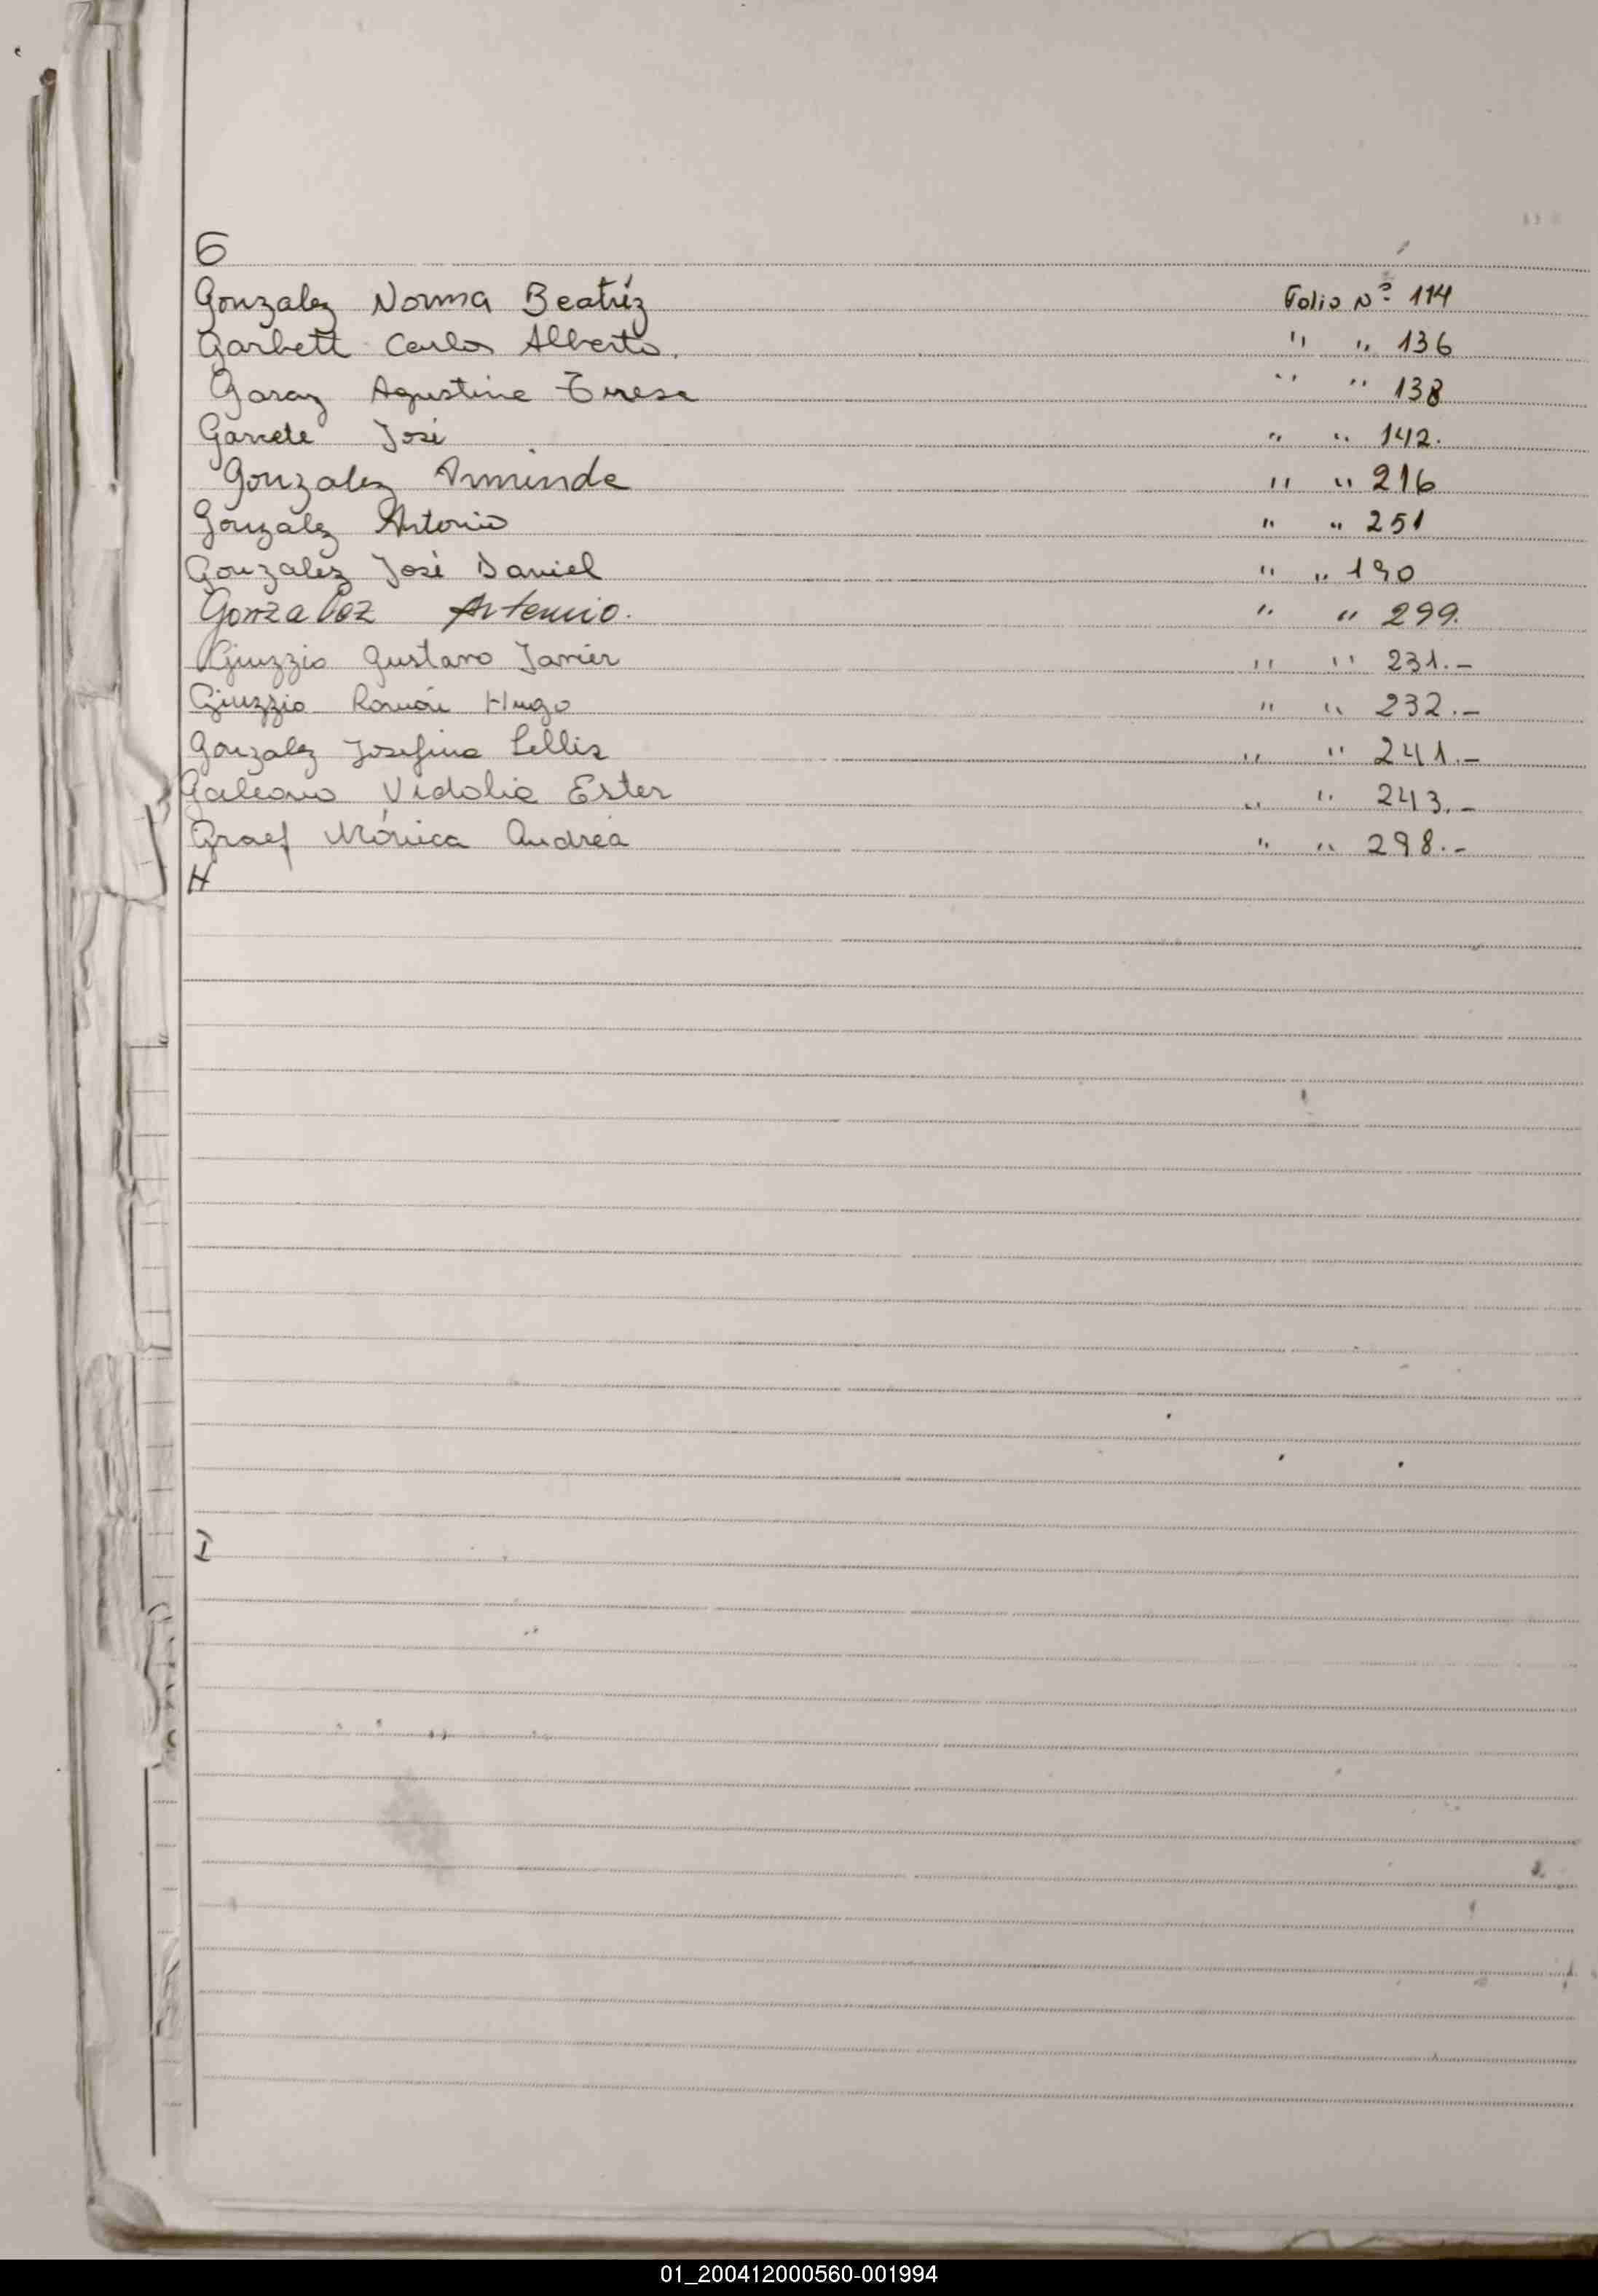 G
Gonzalez Norma Beatríz Folio Nº 114
Garbett Carlos Alberto. " " 136
Garay Agustina Teresa " " 138
Garcete José " " 142.
Gonzalez Arminda " " 216
Gonzalez Antonio " " 251
Gonzalez José Daniel " " 190
Gonzalez Artemio. " " 299.
Giuzzio Gustavo Javier " " 231.-
Giuzzio Ramón Hugo " " 232.-
Gonzalez Josefina " " 241.-
Galeano Vidalia Ester " " 243.-
Graef Mónica Andréa " " 298.-
H
I
01_200412000560-001994